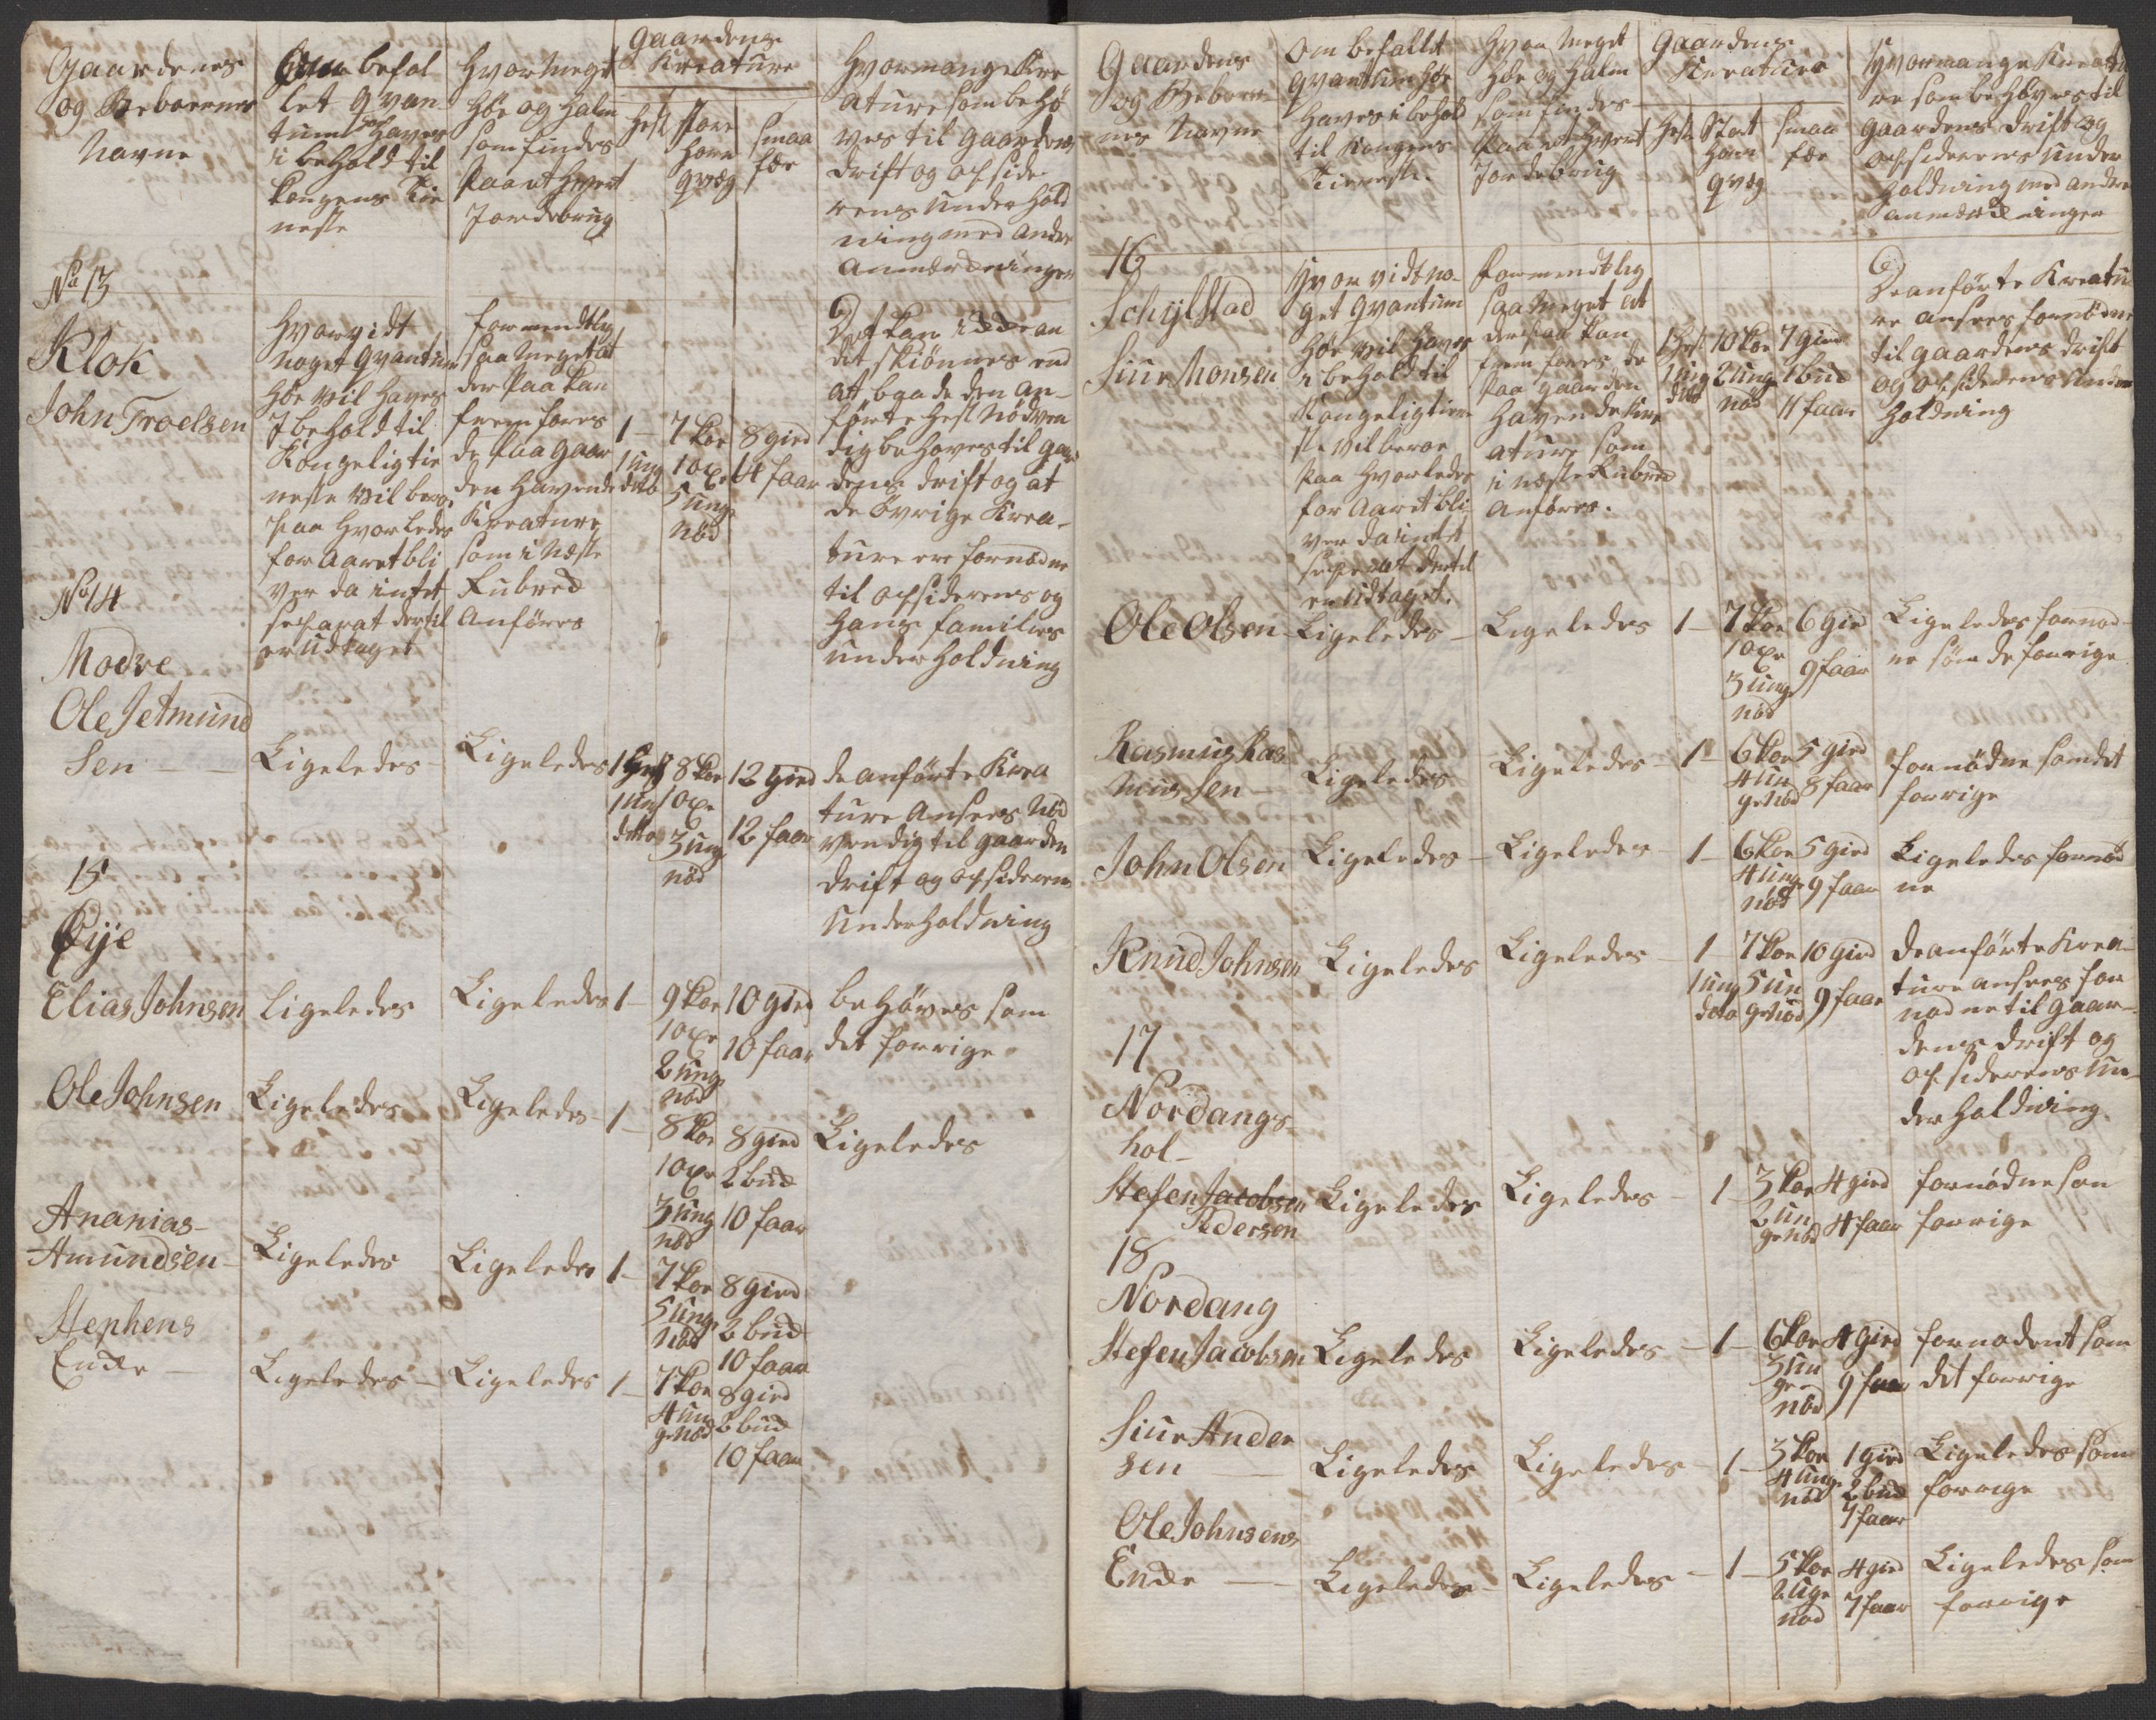 Gaardenes
og Beboernes
Navne
Om befal
let Qvan
tum Høe haves
i behold til
Kongens Tie
neste
Hvor Meget
Høe og Halm
som findes
paa et hvert
Jordebrug
Gaardens
Kreature
Hest
store
Horn
qvæg
smaa
fæe
Hvormange Kre
ature som behø
ves til Gaardens
drift og opside
rens Underhold
ning med andre
Anmærkninger
No 13
Klok
John Troelsen
Hvorvidt
Noget Qvantum
Høe vil haves
I behold til
Kongelig tie
neste vil beroe
paa hvorledes
for Aaret bli
ver da intet
separat dertil
er udtaget
formendtlig
saa Meget at
der paa kan
frem fores
de paa Gaar
den havende
Kreature
som i Næste
Rubred
Anføres
1
1 ung
ditto
7 Kør
1 oxe
5 unge
Nød
8 gied
14 faar
Det kan icke an
det skiønnes end
at baade den an
førte Hest Nødven
dig behøves til Gaar
dens drift og at
de øvrige Krea-
ture ere fornødne
til opsiderens og
Hans families
underholdning
No 14
Modre
Ole Jetmund
Sen
Ligeledes
Ligeledes
1 Hest
1 ung
ditto
8 Kør
1 oxe
3 ung
nød
12 gied
12 faar
de anførte Krea
ture Ansees Nød
vendig til Gaarden
drift og opsiderens
Underholdning
15
Øije
Elias Johnsen
Ligeledes
Ligeledes
1
9 Kør
1 oxe
2 ung
nød
10 gied
10 faar
behøves som
det forrige
Ole Johnsen
Ligeledes
Ligeledes
1
8 Kør
1 oxe
3 ung
nød
8 gied
2 bud
10 faar
Ligeledes
Ananias
Amundsen
Ligeledes
Ligeledes
1
7 Kør
5 unge
Nød
8 gied
2 bud
10 faar
Stephens
Encke
Ligeledes
Ligeledes
1
7 Kør
4 un
ge Nød
8 gied
2 bud
10 faar
Gaardens
og Beboer
nes Navne
Om befallet
Qvantum Høe
Haves i behold
til Kongens
Tieneste.
Hvor Meget
Høe og Halm
som findes
paa et hvert
Jordebrug
Gaardens
Kreature
Hest
Stort
Horn
qvæg
smaa
fæe
Hvormange Kreatu
re som behøves til
Gaardens drift og
opsiderens Under
holdning med andre
anmærckninger
16
Schylstad
Siur Monsen
Hvorvidt no-
get Qvantum
Høe vil haves
i behold til
Kongelig tiene
ste vil beroe
paa hvorledes
for Aaret bli
ver da intet
seperat dertil
er udtaget.
formendtlig
saa Meget at
der paa kan
frem fores de
paa Gaarden
havende Kre
ature som
i næste Rubred
Anføres.
1 Hest
1 ung
dito
10 Kør
2 ung
nød
7 gied
1 bud
11 faar
De anførte Kreatu
re ansees fornødne
til Gaardens drift
og opsiderens Under
holdning
Ole Olsen
Ligeledes
Ligeledes
1
7 Kør
1 oxe
3 unge
nød
6 gied
9 faar
Ligeledes fornød-
ne som de forrige
Rasmus Ras
mussen
Ligeledes
Ligeledes
1
6 Kør
4 un
ge Nød
5 gied
8 faar
fornødne som det
forrige
John Olsen
Ligeledes
Ligeledes
1
6 Kør
4 unge
nød
5 gied
9 faar
Ligeledes fornød
ne
Knud Johnsen
Ligeledes
Ligeledes
1
1 ung
dito
7 Kør
5 un
ge Nød
10 gied
9 faar
De anførte Krea-
ture ansees for
nødne til Gaar-
dens drift og
opsiderens Un-
derholdning
17
Nordangs-
hol-
Stefen Jacobsen
Pedersen
Ligeledes
Ligeledes
1
3 Kør
2 un
ge Nød
4 gied
4 faar
fornødne som
forrige
18
Nordang
Stefen Jacobsen
Ligeledes
Ligeledes
1
6 Kør
3 un
ge
nød
4 gied
9 faar
fornødent som
det forrige
Siur Ander
sen
Ligeledes
Ligeledes
1
3 Kør
4 ung
nød
1 gied
2 bud
7 faar
Ligeledes som
forrige
Ole Johnsens
Encke
Ligeledes
Ligeledes
1
5 Kør
2 uge
nød
4 gied
7 faar
Ligeledes som
forrige